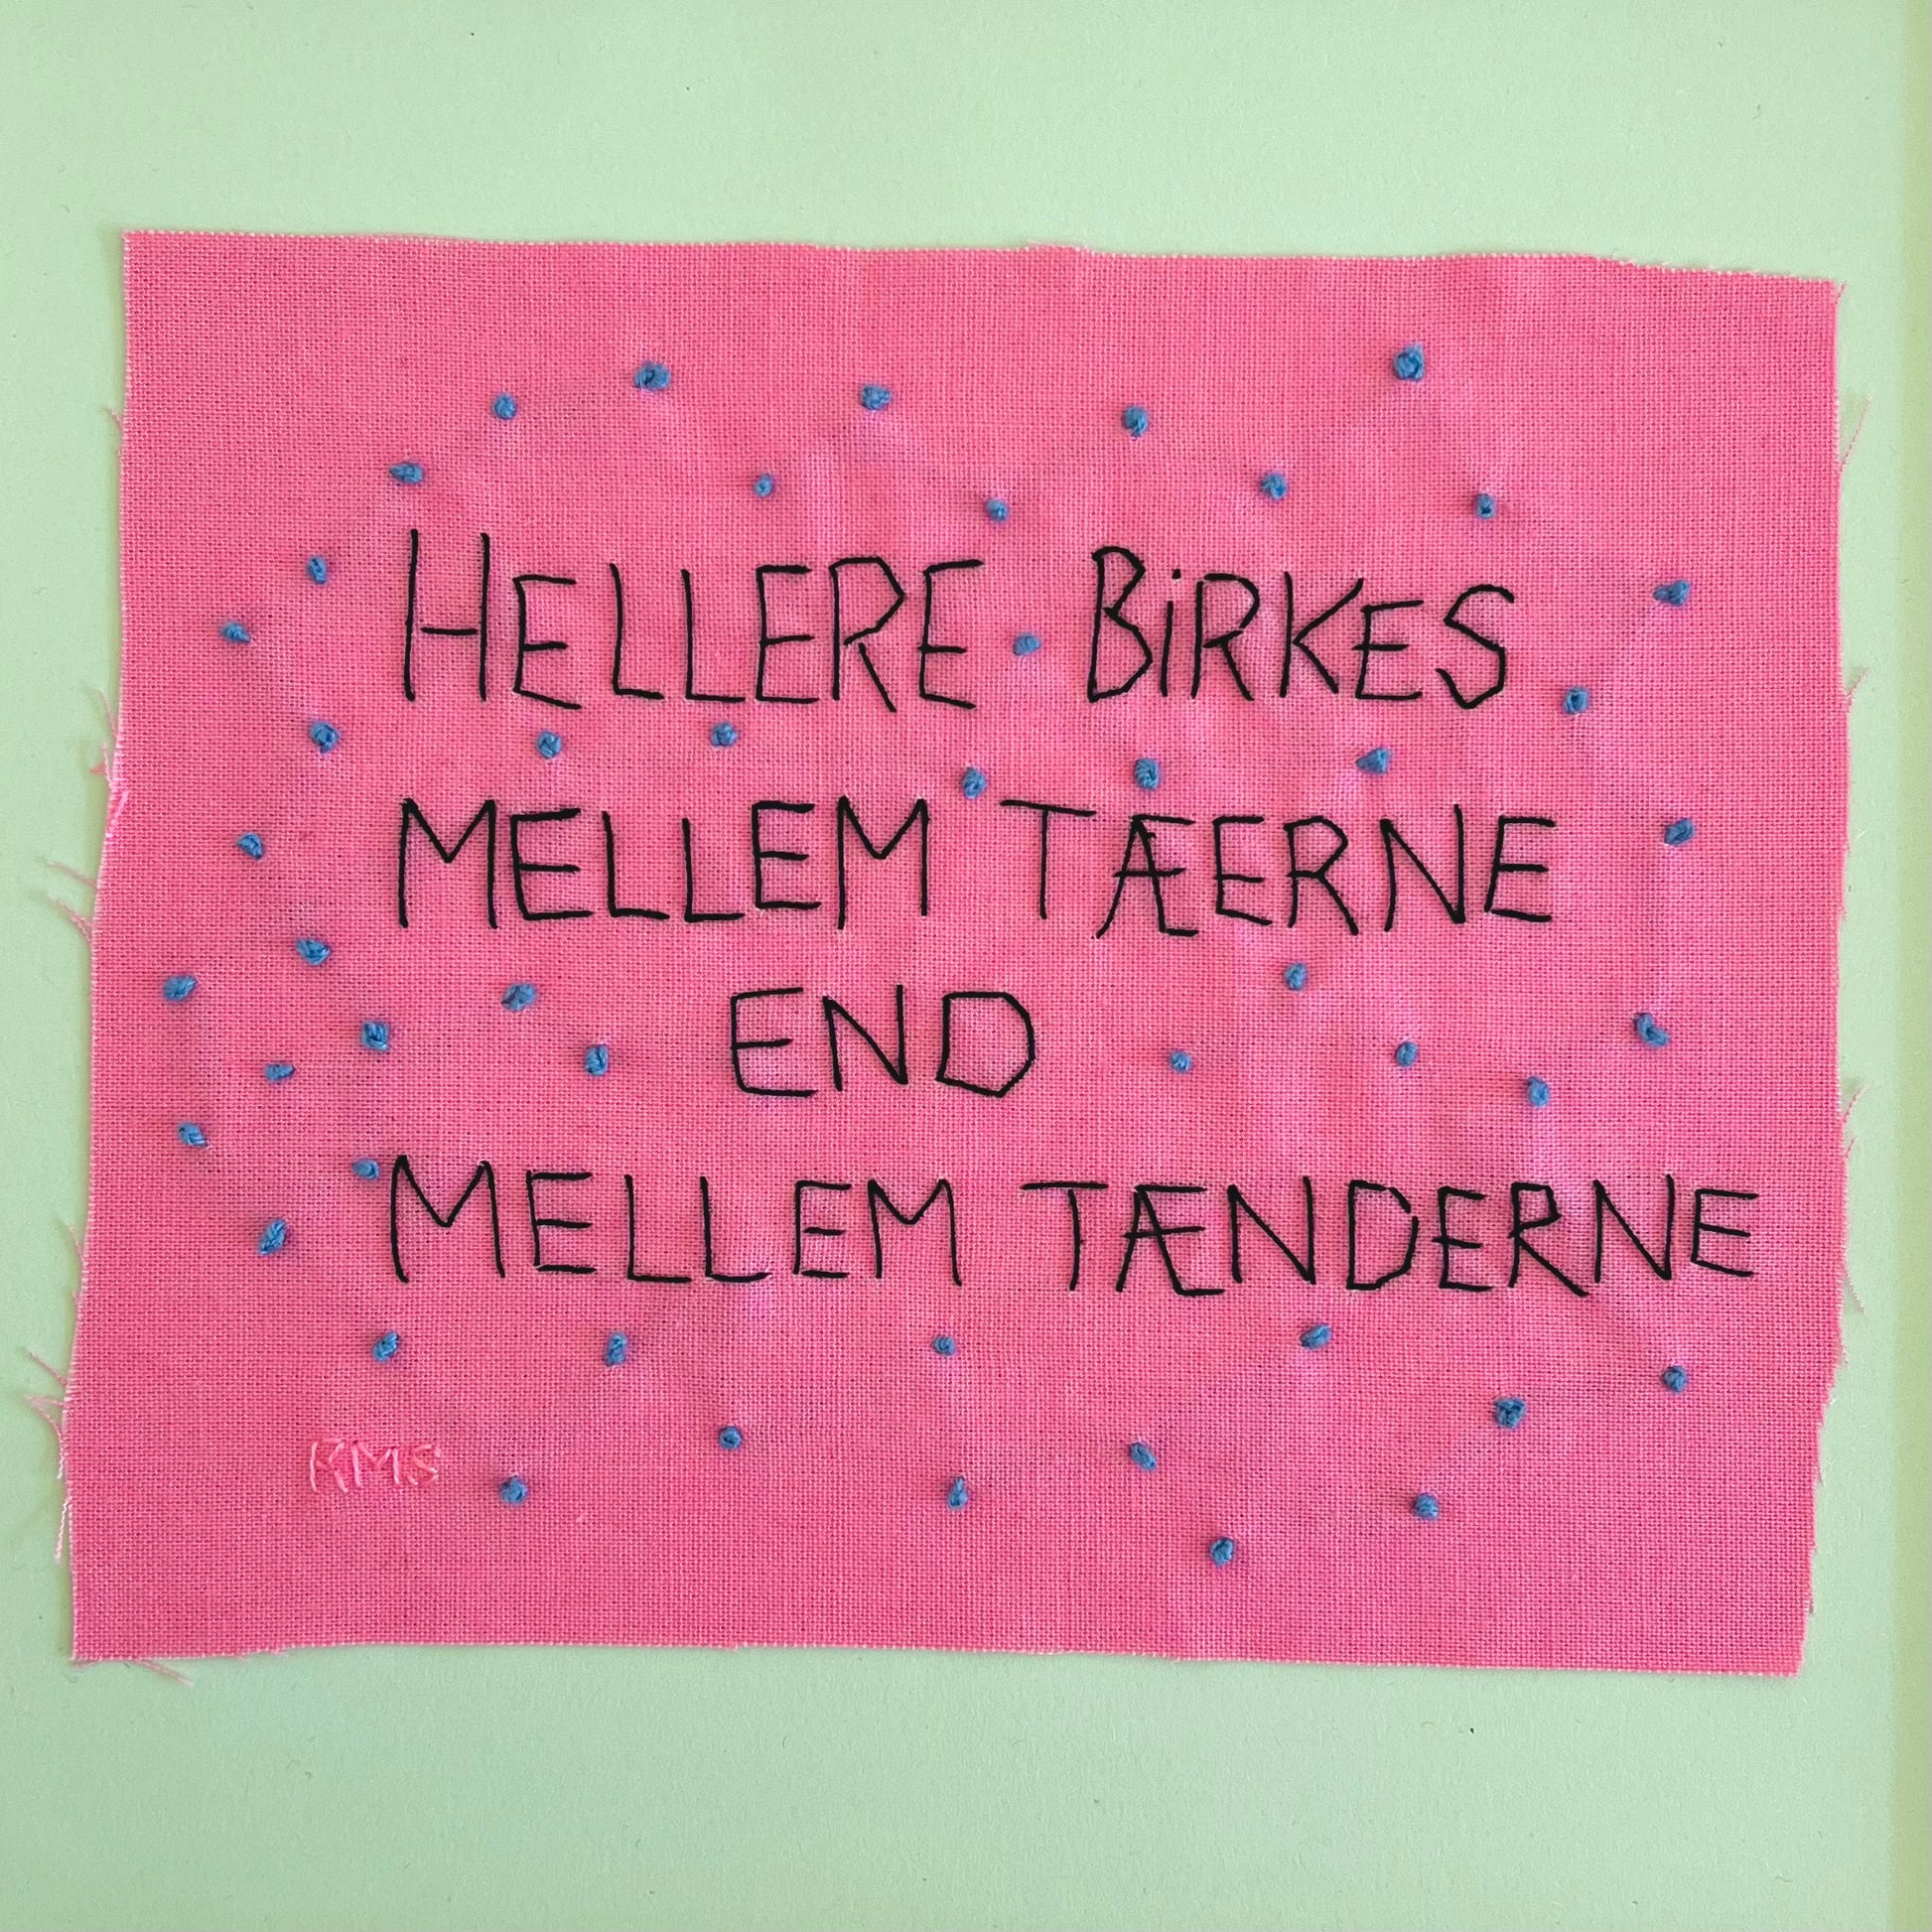 HELLERE BiRKES
MELLEM TÆERNE
END
MELLEM TÆNDERNE
RMS